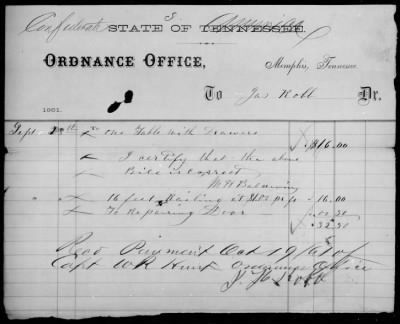 Confederate S. America
STATE OF TENNESSEE.
ORDNANCE OFFICE,
Memphis, Tennessee.
To Jas Robb Dr.
1861.
Sept 28th To One Table with Drawers $16.00
I certify that the above
Bill is correct
16 feet Railing at $1.00 pr ft 16.00
To Repairing Door
Recd Payment Oct 19/61 of
Capt W R Hunt Ordnance Office